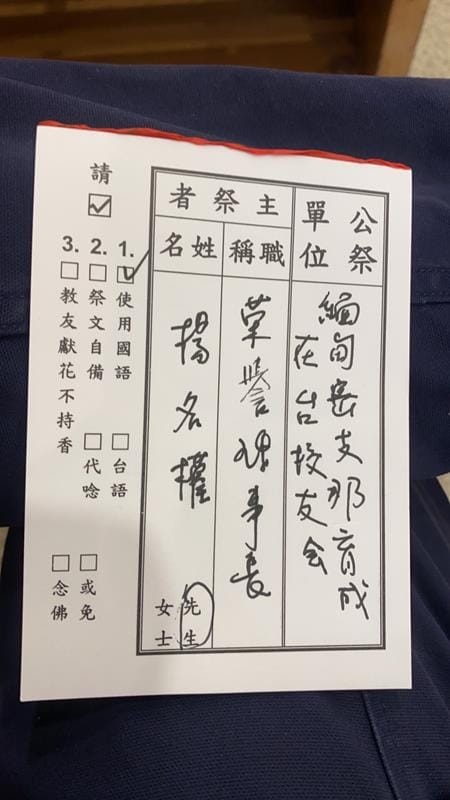 公祭
單位
緬甸密支那育成
在台校友会
主祭者
職稱
姓名
榮譽理事長
楊名權
先生
女士
請
☑
1. ☑ 使用國語 □ 台語
2. □ 祭文自備 □ 代唸 □ 或免
3. □ 教友獻花不持香 □ 念佛